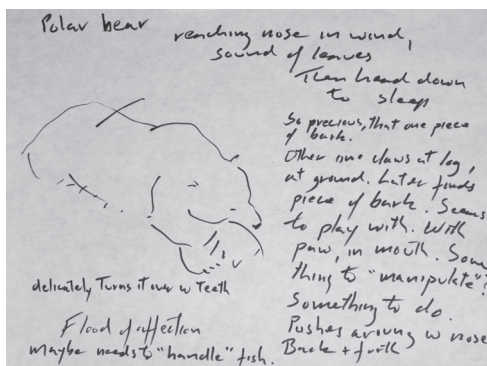 Polar bear
reaching nose in wind,
sound of leaves
Then head down
to sleep
So precious, that one piece
of bark.
Other one claws at log,
at ground. Later finds
piece of bark. Seems
to play with. With
paw, in mouth. Some
thing to "manipulate"?
Something to do.
Pushes aroung w nose
Back + forth
delicately Turns it over w Teeth
Flood of affection
Maybe needs to "handle" fish.